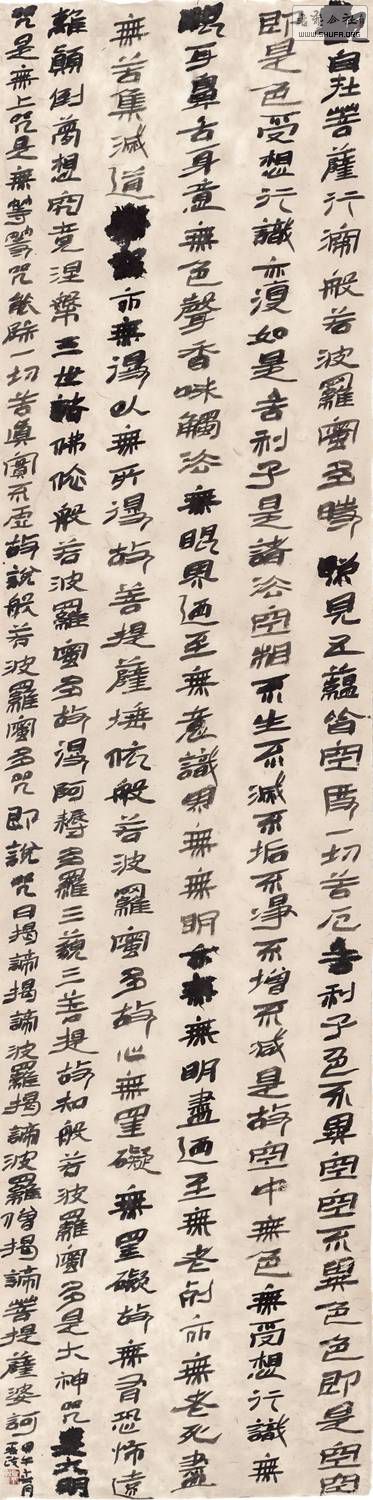 自在菩薩行深般若波羅蜜多時照見五蘊皆空度一切苦厄舍利子色不異空空不異色色即是空空
即是色受想行識亦復如是舍利子是諸法空相不生不滅不垢不淨不增不減是故空中無色無受想行識無
眼耳鼻舌身意無色聲香味觸法無眼界迺至無意識界無無明亦無無明盡迺至無老死亦無老死盡
無苦集滅道亦無得以無所得故菩提薩埵依般若波羅蜜多故心無罣礙無罣礙故無有恐怖遠
離顛倒夢想究竟涅槃三世諸佛依般若波羅蜜多故得阿耨多羅三藐三菩提故知般若波羅蜜多是大神咒是大明
咒是無上咒是無等等咒能除一切苦真實不虛故說般若波羅蜜多咒即說咒曰揭諦揭諦波羅揭諦波羅僧揭諦菩提薩婆訶
甲午
WWW.SHUFA.ORG